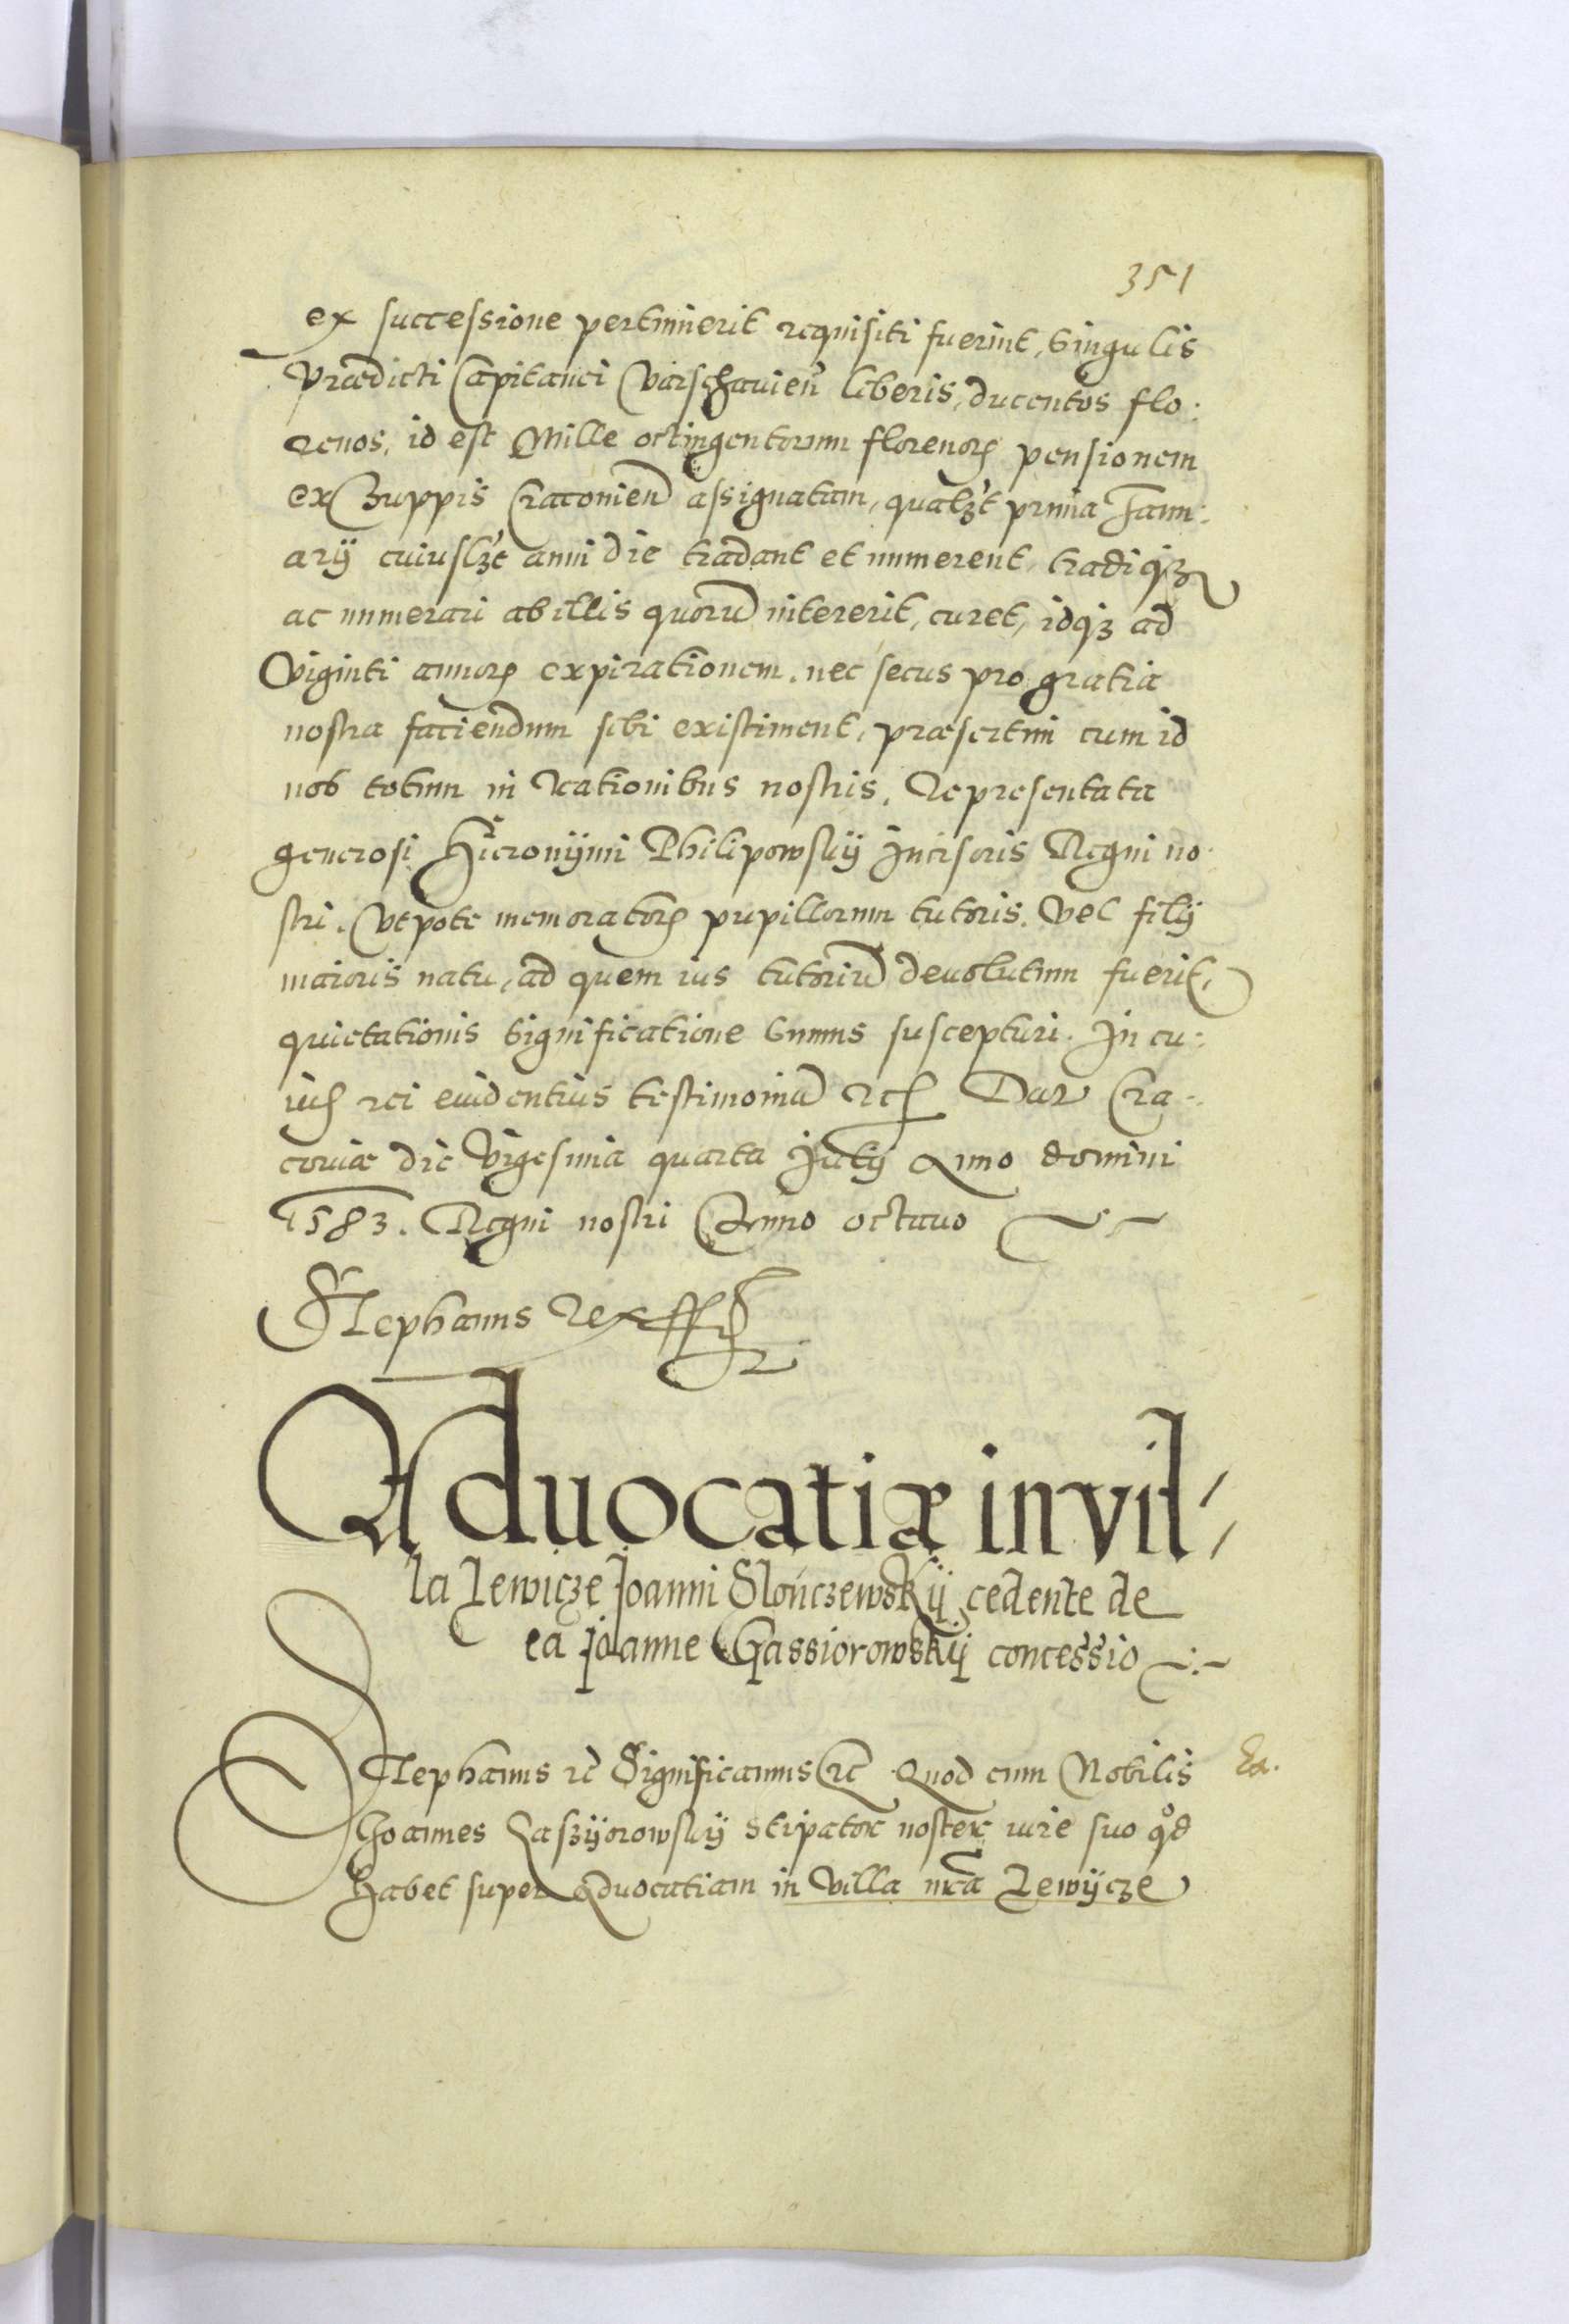 351
ex successione pertinuerit requisiti fuerint, singulis
prædicti Capitanei Varschauien̄ liberis, ducentos flo:
renos, id est Mille octingentorum florenorꝝ pensionem
ex Zuppis Cracouien̄ assignatam, qualꝫt prima Janu:
arÿ cuiuslꝫt anni die tradant et numerent, tradiqꝫ
ac numerari ab illis quorū intererit, curet, idqꝫ ad
Viginti annorꝝ expirationem. nec secus pro gratia
nostra faciendum sibi existiment, præsertim cum id
nos totum in Rationibus nostris. Representata
generosi Hieronÿmi Philipowskÿ Incisoris Regni no
stri. Vtpote memoratorꝝ pupillorum tutoris. Vel filÿ
maioris natu, ad quem ius tutoriū deuolutum fuerit,
quietationis significatione sumus suscepturi. In cu:
ius rei euidentius testimoniū etc Dat Cra:
couiæ die Vigesima quarta Julÿ Anno domini
1583. Regni nostri Anno octauo
Stephanus Rex ss
Aduocatiæ in vil
la Lewicze Joanni Slończewskÿ cedente de
ea Joanne Gassiorowskÿ concessio
Stephanus etc Significamus etc Quod cum Nobilis
Joannes Gaszÿorowskÿ stipator noster iure suo qd
habet super Aduocatiam in Villa nr̄a Lewÿcze